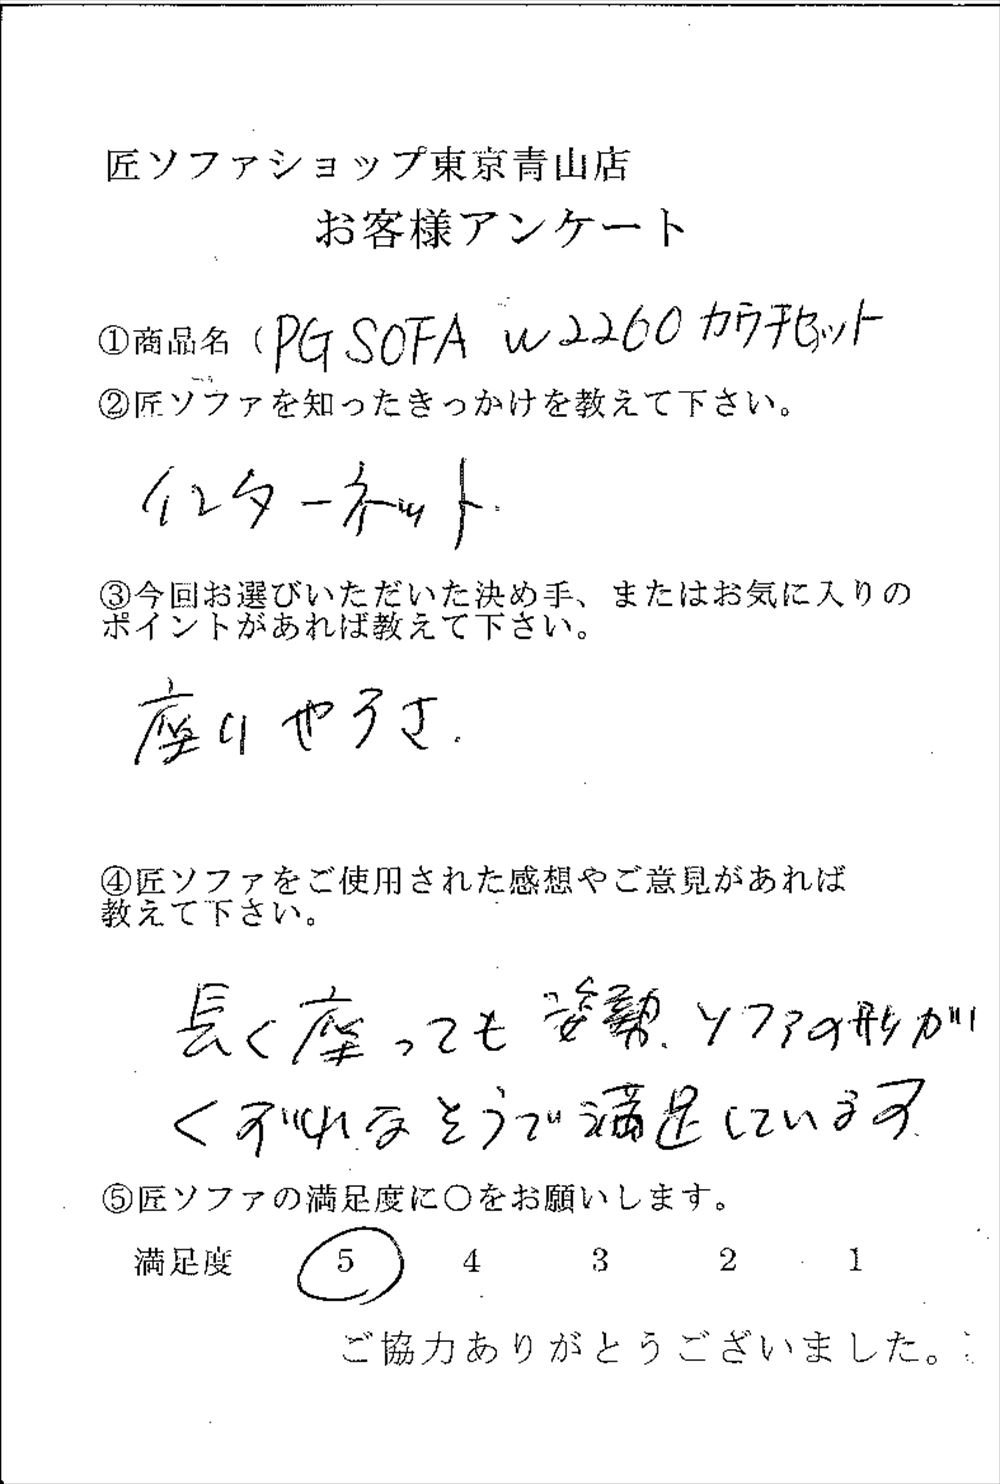 匠ソファショップ東京青山店
お客様アンケート
①商品名（PG SOFA w2260カウチセット
②匠ソファを知ったきっかけを教えて下さい。
インターネット.
③今回お選びいただいた決め手、またはお気に入りの
ポイントがあれば教えて下さい。
座りやすさ.
④匠ソファをご使用された感想やご意見があれば
教えて下さい。
長く座っても姿勢、ソファの形が
くずれなそうで満足しています
⑤匠ソファの満足度に〇をお願いします。
満足度 5 4 3 2 1
ご協力ありがとうございました。